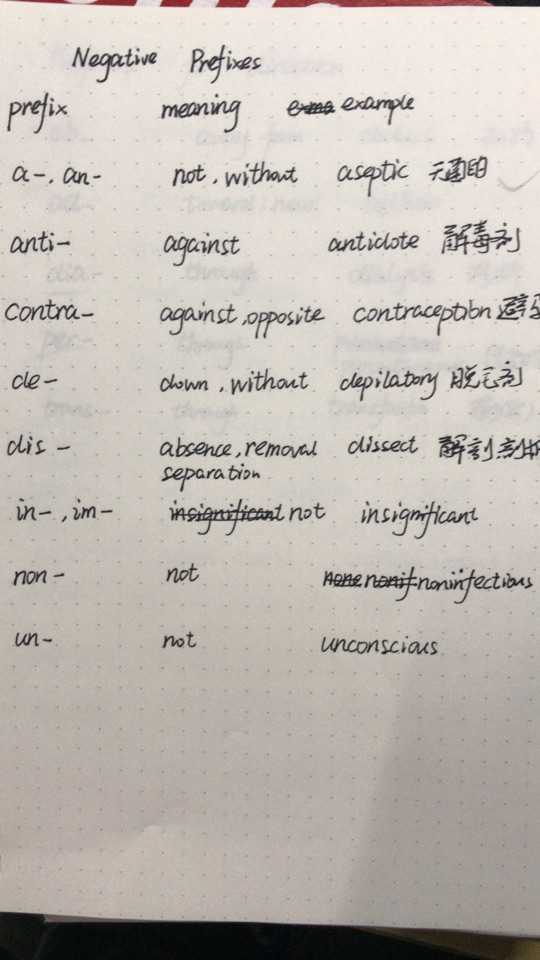 Negative Prefixes
prefix meaning example
a-, an- not, without aseptic 无菌的
anti- against antidote 解毒剂
contra- against, opposite contraception 避孕
de- down, without depilatory 脱毛剂
dis- absence, removal dissect 解剖
separation
in-, im- insignificant not insignificant
non- not noninfectious
un- not unconscious